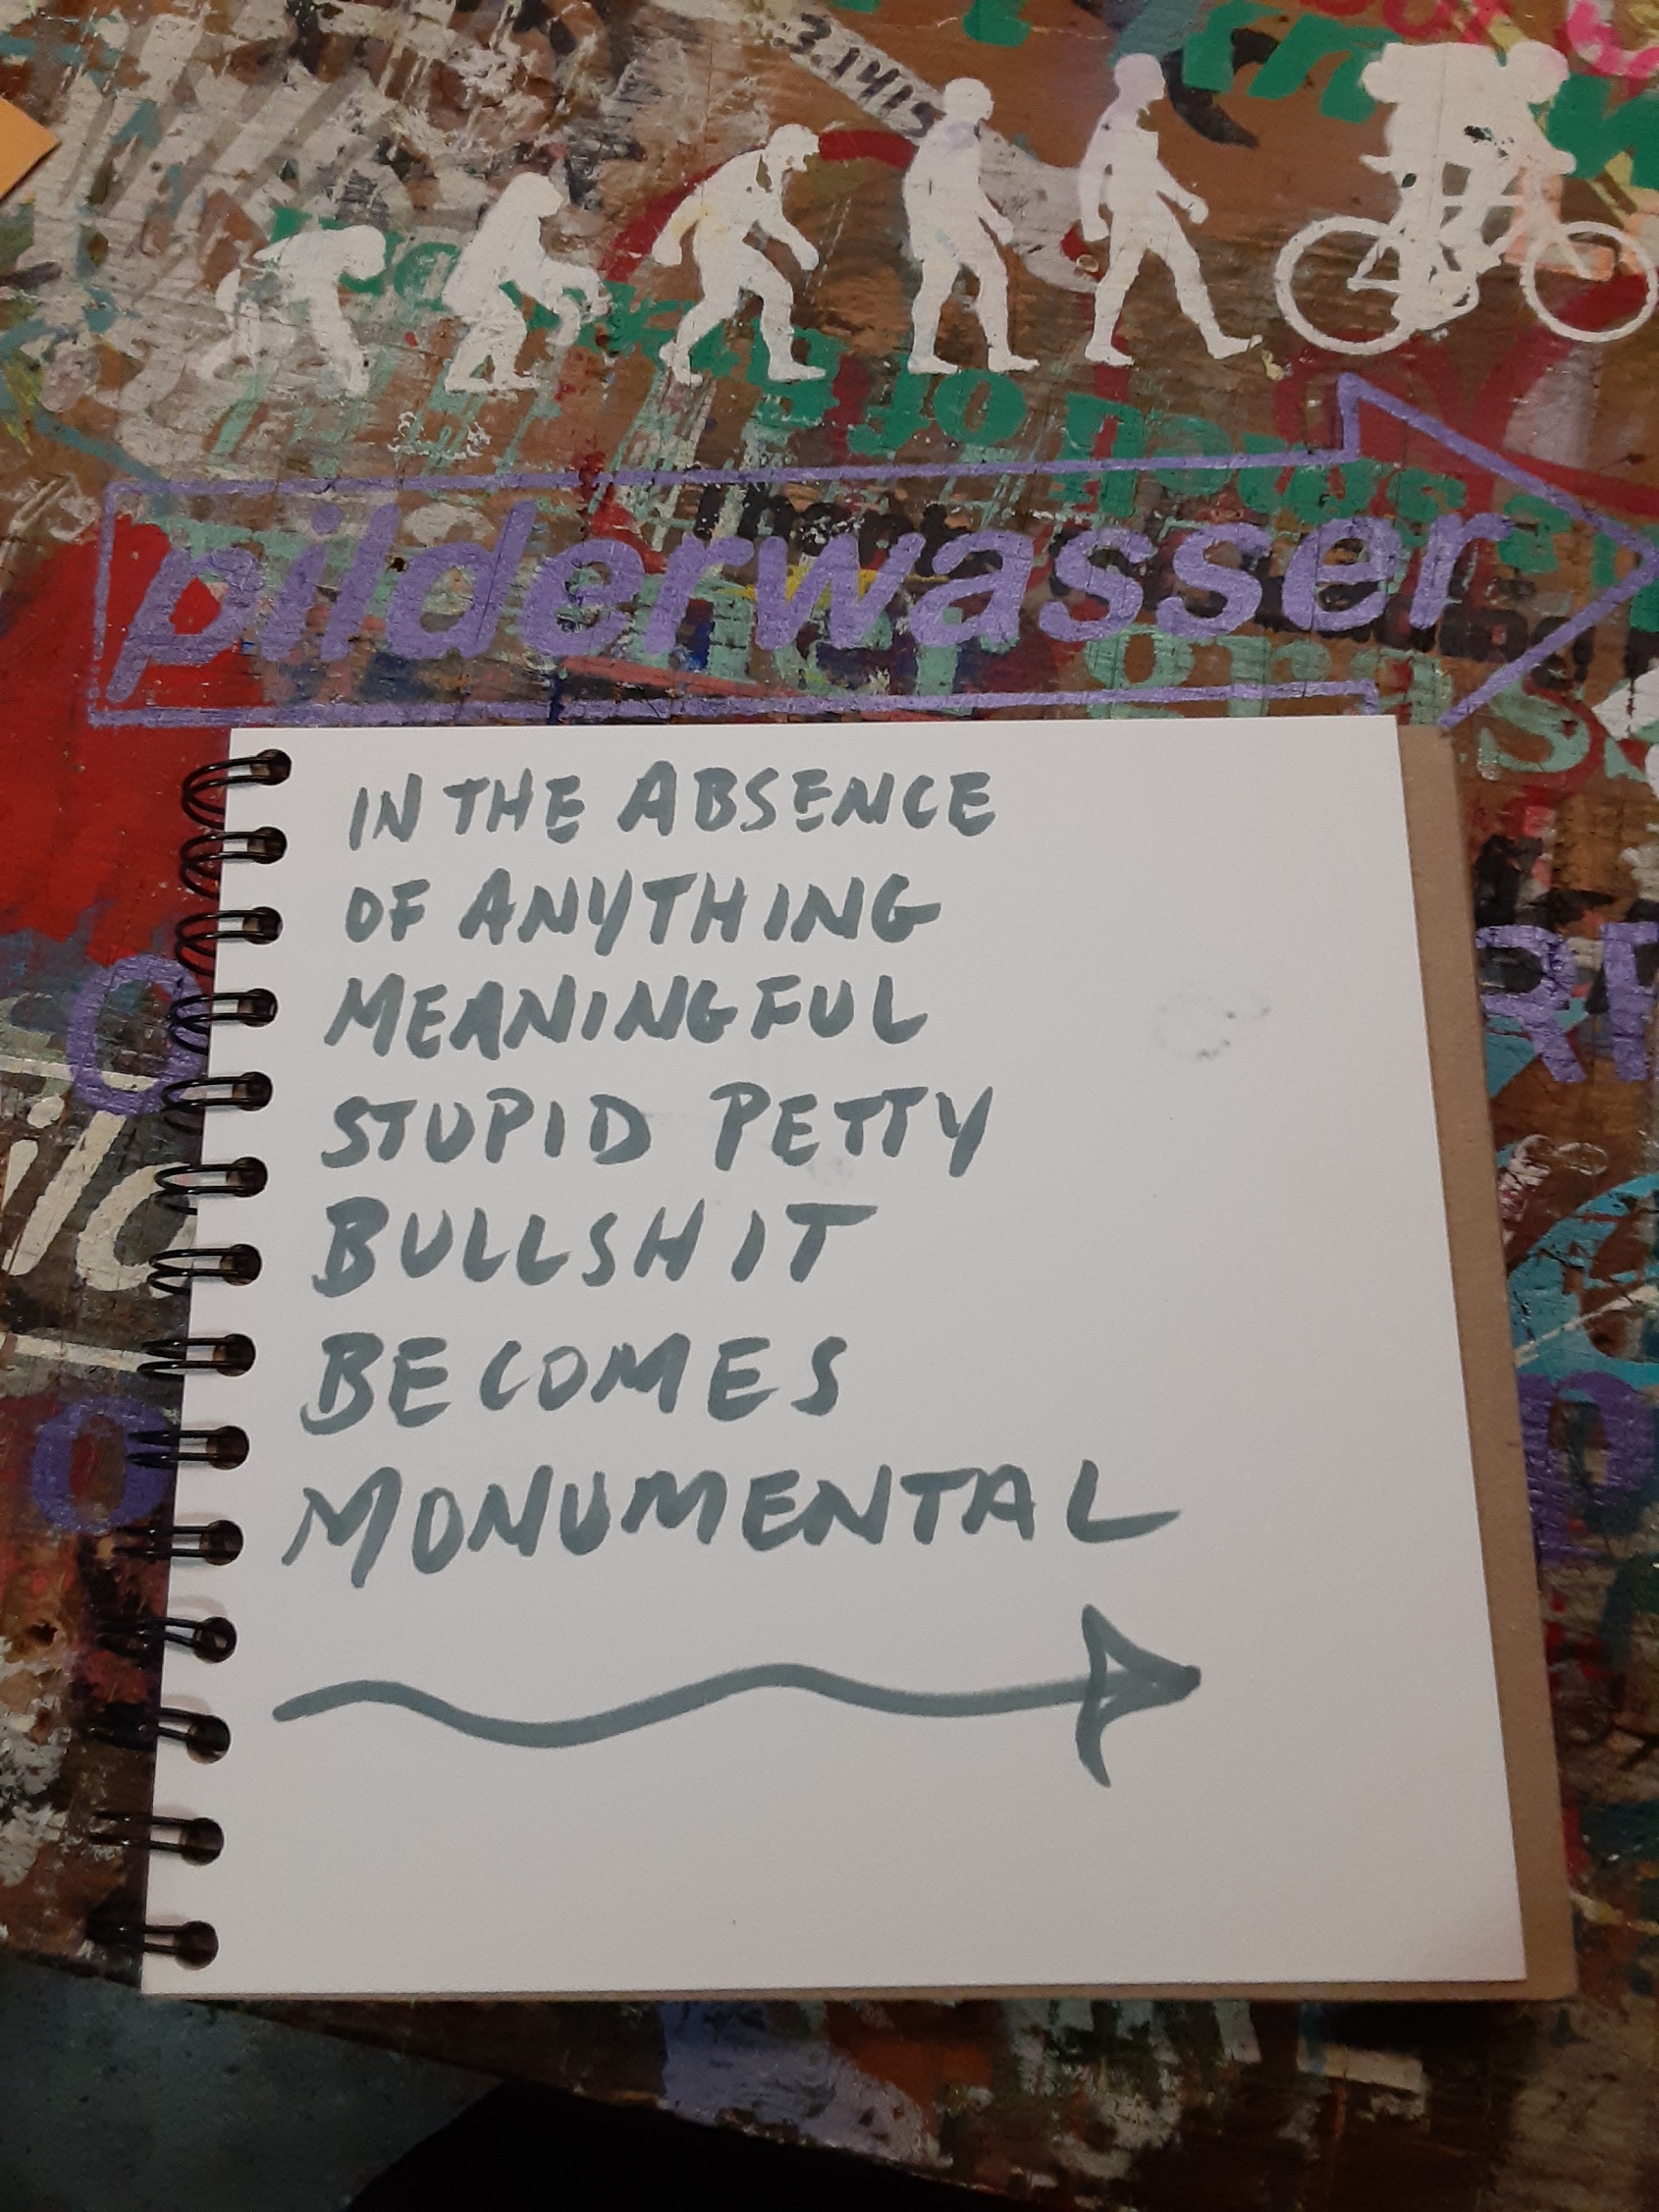 3.1415
pilderwasser
IN THE ABSENCE
OF ANYTHING
MEANINGFUL
STUPID PETTY
BULLSHIT
BECOMES
MONUMENTAL